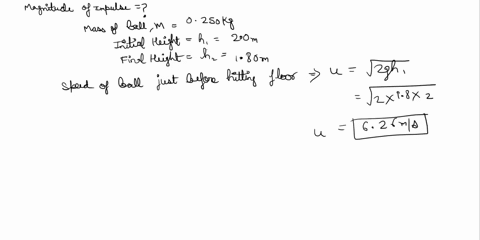 Magnitude of impulse = ?
Mass of ball, m = 0.250 kg
Initial Height = h₁ = 2.0 m
Final Height = h₂ = 1.80 m
Speed of ball just before hitting floor ⇒ u = √2gh₁
= √2×9.8×2
u = 6.26 m/s